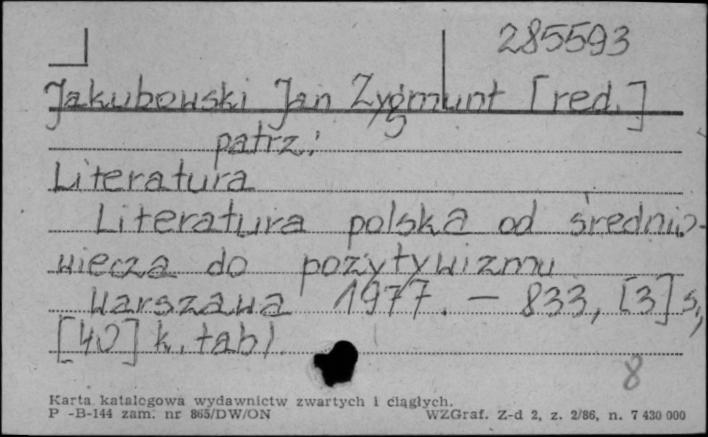 285593
Jakubowski Jan Zygmunt [red.]
patrz:
Literatura
Literatura polska od średnio-
wiecza do pozytywizmu
Warszawa 1977. — 833, [3] s.,
[40] k. tabl.
8
Karta katalogowa wydawnictw zwartych i ciągłych.
P -B-144 zam. nr 865/DW/ON WZGraf. Z-d 2, z. 2/86, n. 7 430 000